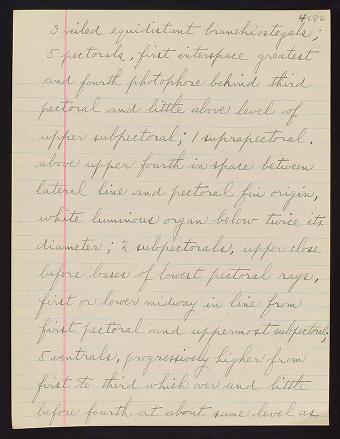 4282
3 veiled equidistant branchiostegals;
5 pectorals, first interspace greatest
and fourth photophore behind third
pectoral and little above level of
upper subpectoral; 1 suprapectoral,
above upper fourth in space between
lateral line and pectoral fin origin,
white luminous organ below twice its
diameter; 2 subpectorals, upper close
before bases of lowest pectoral rays,
first or lower midway in line from
first pectoral and uppermost subpectoral;
5 ventrals, progressively higher from
first to third which over and little
before fourth at about same level as